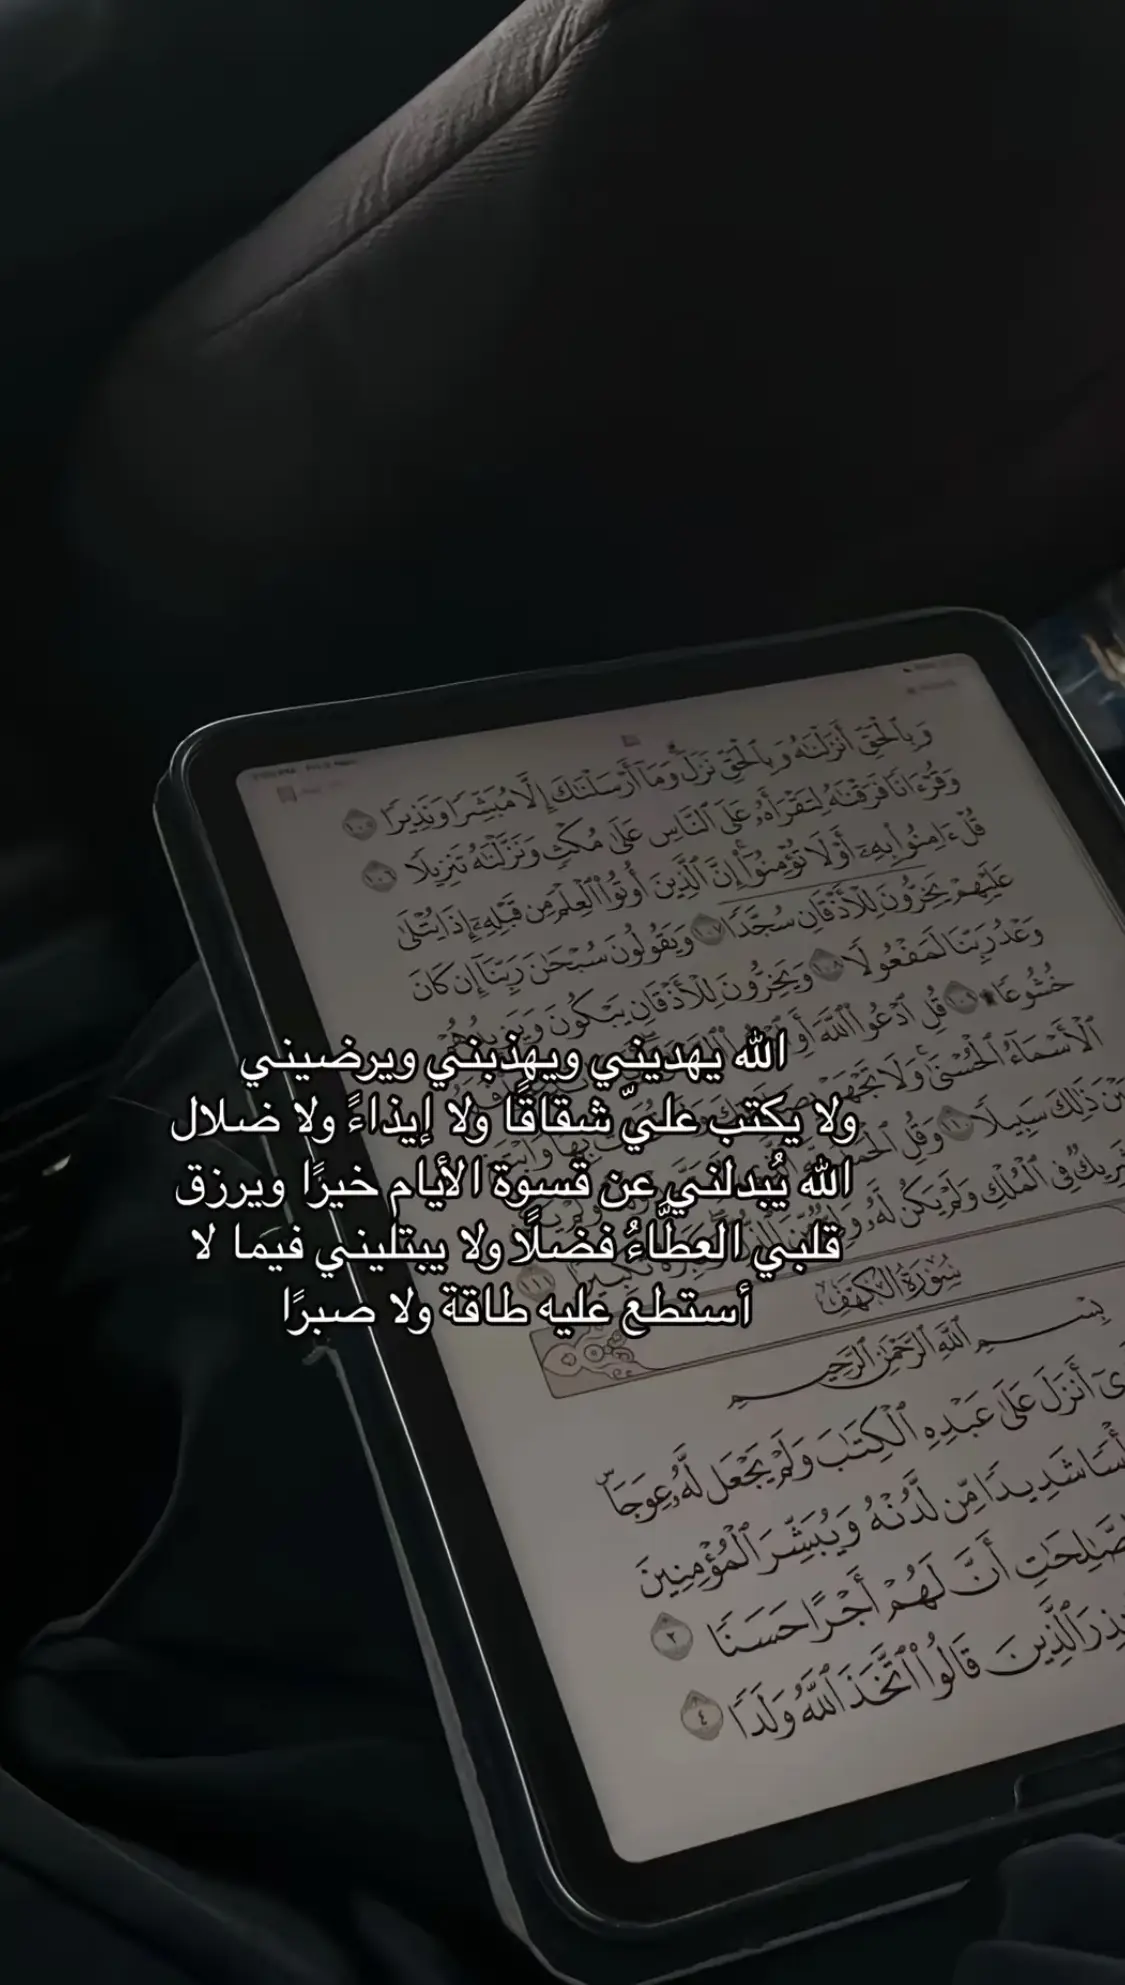 وَبِالْحَقِّ أَنزَلْنَاهُ وَبِالْحَقِّ نَزَلَ وَمَا أَرْسَلْنَاكَ إِلَّا مُبَشِّرًا وَنَذِيرًا ١٠٥
وَقُرْءَانًا فَرَقْنَاهُ لِتَقْرَأَهُ عَلَى النَّاسِ عَلَىٰ مُكْثٍ وَنَزَّلْنَاهُ تَنزِيلًا ١٠٦
قُلْ ءَامِنُوا بِهِ أَوْ لَا تُؤْمِنُوا إِنَّ الَّذِينَ أُوتُوا الْعِلْمَ مِن قَبْلِهِ إِذَا يُتْلَىٰ
عَلَيْهِمْ يَخِرُّونَ لِلْأَذْقَانِ سُجَّدًا ١٠٧ وَيَقُولُونَ سُبْحَانَ رَبِّنَا إِن كَانَ
وَعْدُ رَبِّنَا لَمَفْعُولًا ١٠٨ وَيَخِرُّونَ لِلْأَذْقَانِ يَبْكُونَ وَيَزِيدُهُمْ
خُشُوعًا ١٠٩ قُلِ ادْعُوا اللَّهَ أَوِ
الْأَسْمَاءُ الْحُسْنَىٰ وَلَا تَجْهَرْ
بَيْنَ ذَٰلِكَ سَبِيلًا ١١٠ وَقُلِ الْحَمْدُ
شَرِيكٌ فِي الْمُلْكِ وَلَمْ يَكُن لَّهُ
الله يهديني ويهذبني ويرضيني
ولا يكتب عليّ شقاقًا ولا إيذاءً ولا ضلال
الله يُبدلني عن قسوة الأيام خيرًا ويرزق
قلبي العطاءُ فضلًا ولا يبتليني فيما لا
أستطع عليه طاقة ولا صبرًا
سُورَةُ الْكَهْفِ
بِسْمِ اللَّهِ الرَّحْمَٰنِ الرَّحِيمِ
أَنزَلَ عَلَىٰ عَبْدِهِ الْكِتَابَ وَلَمْ يَجْعَل لَّهُ عِوَجَا
شَدِيدًا مِّن لَّدُنْهُ وَيُبَشِّرَ الْمُؤْمِنِينَ
الصَّالِحَاتِ أَنَّ لَهُمْ أَجْرًا حَسَنًا ٢
الَّذِينَ قَالُوا اتَّخَذَ اللَّهُ وَلَدًا ٤